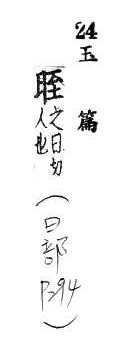 24 玉篇
晊 之日切
人也
(日部 P.294)